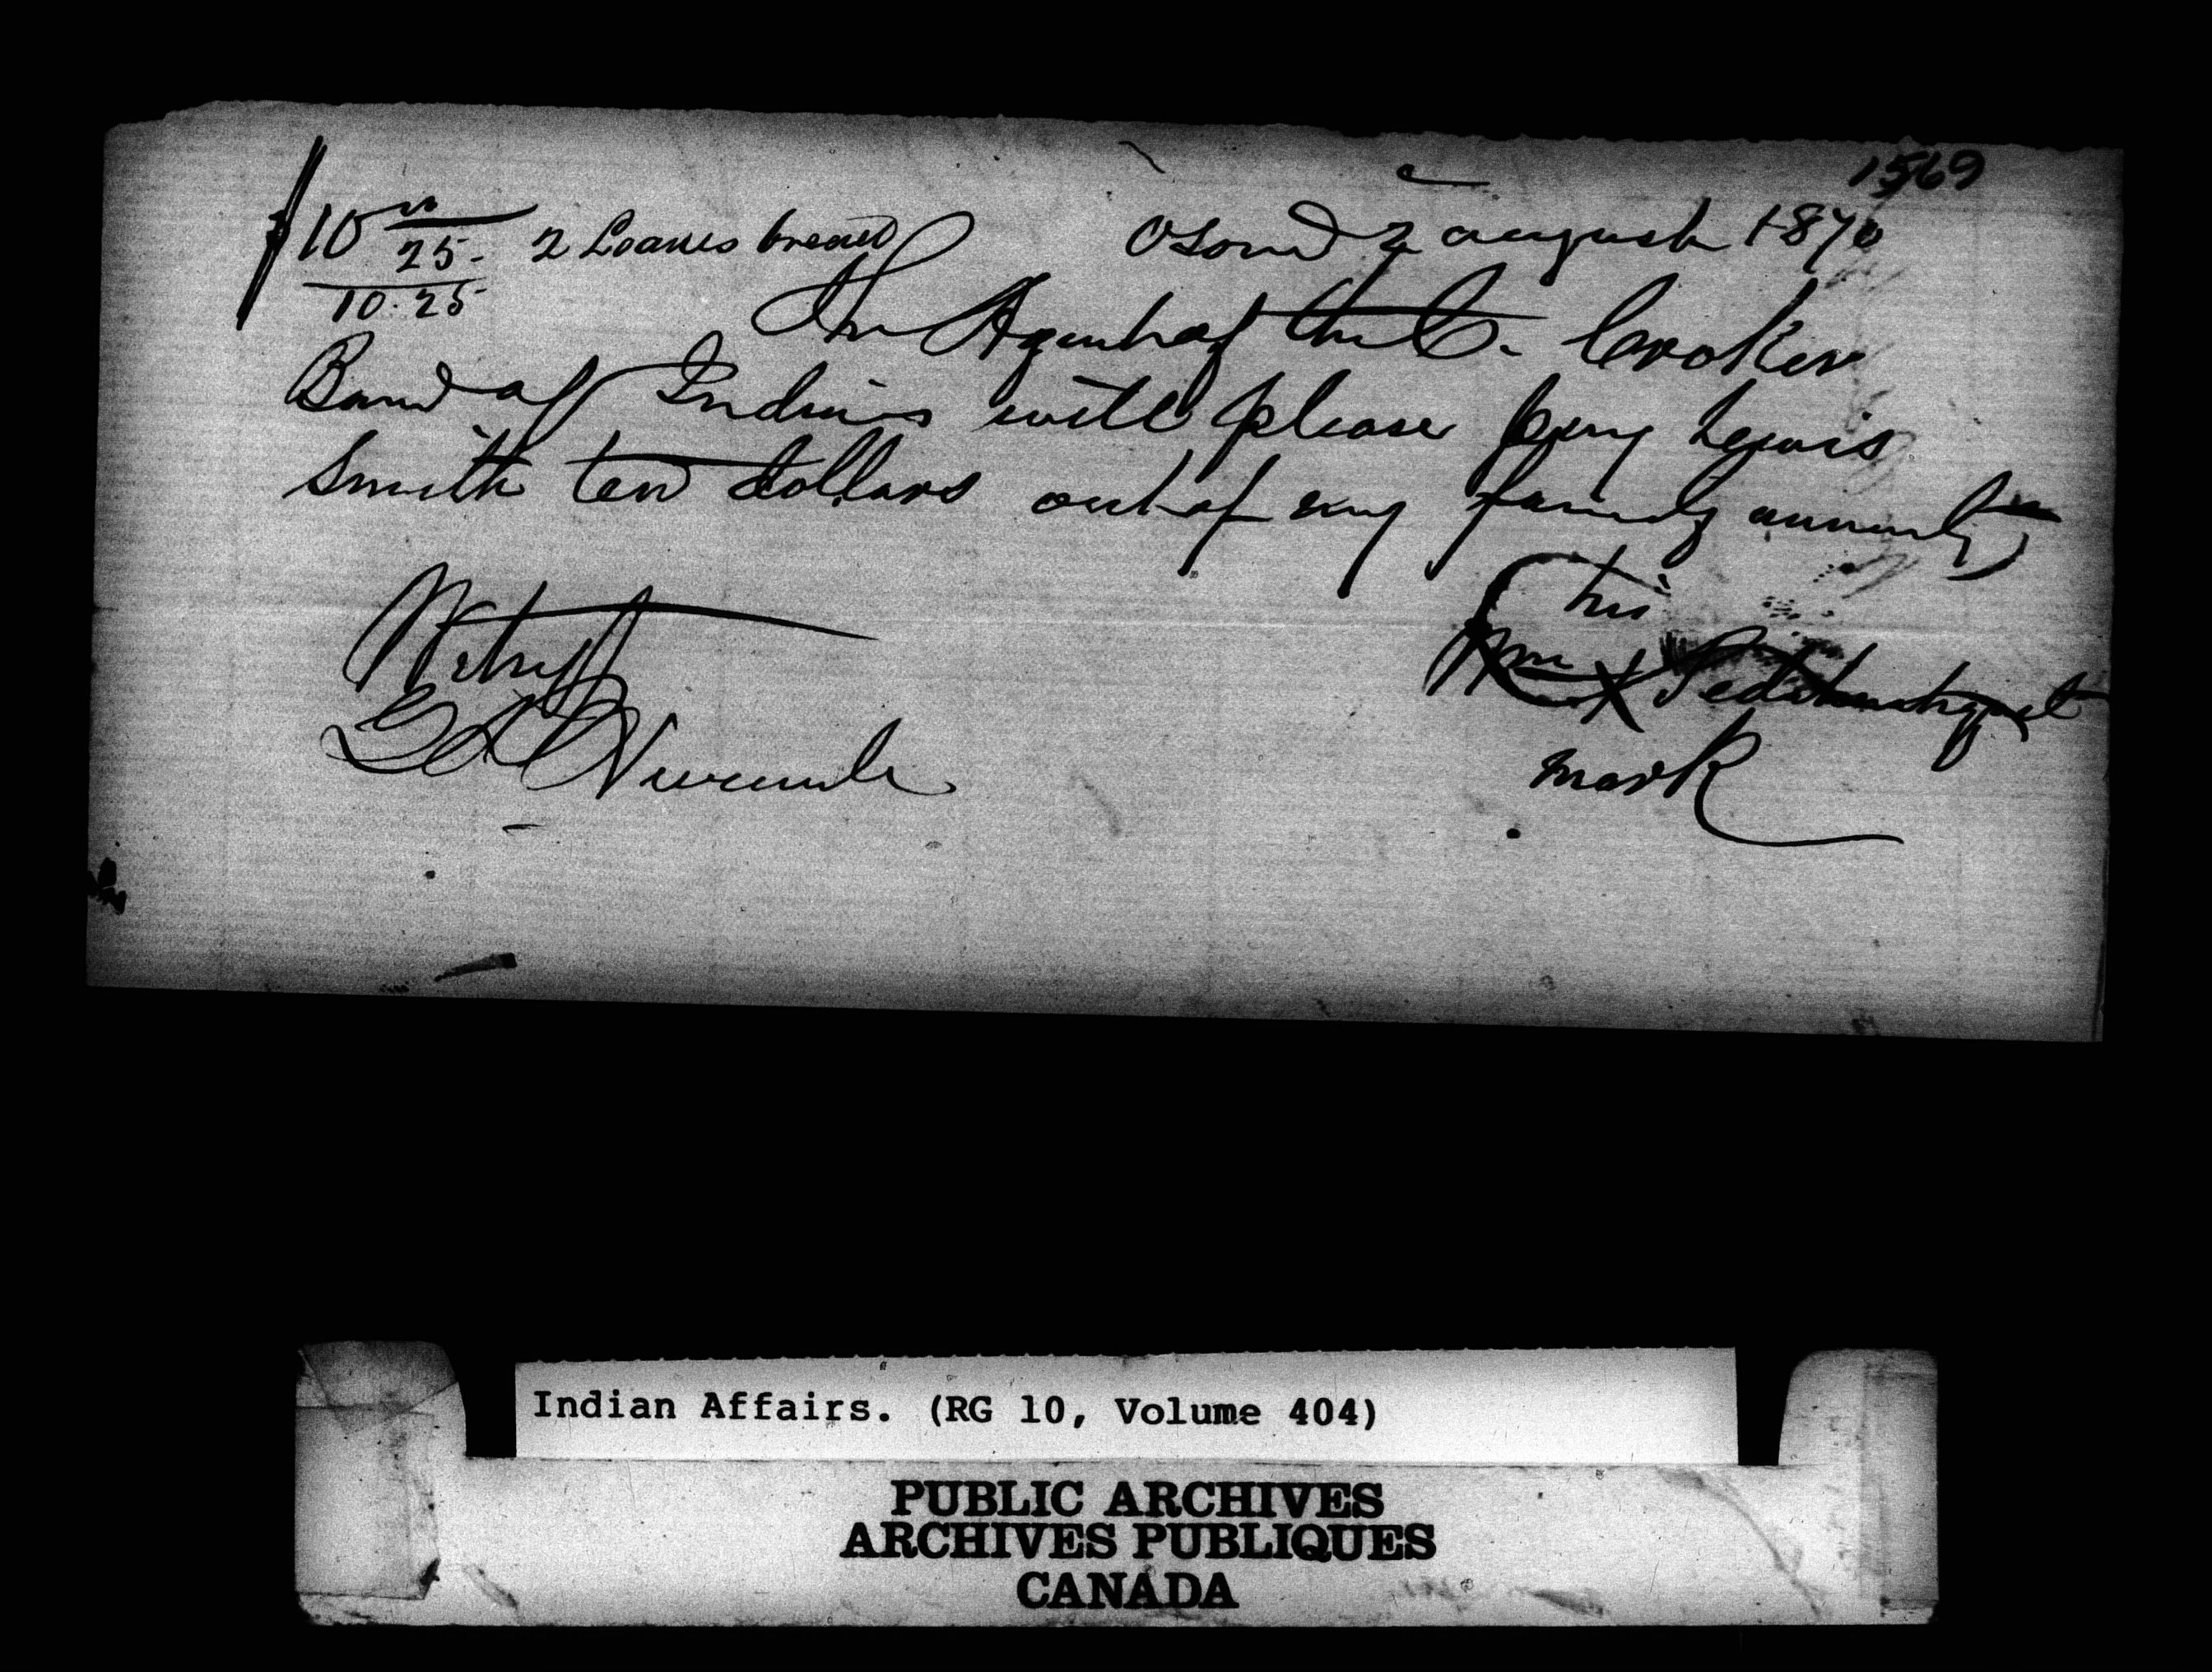 1569
$10 00 O Sound 2 august 1870
25- 2 Loaves bread
10.25
The Agent of the C. Croker
Band of Indians will please pay Lewis
Smith ten dollars out of my family annuity
his
Wm X
mark
Witness
Indian Affairs. (RG 10, Volume 404)
PUBLIC ARCHIVES
ARCHIVES PUBLIQUES
CANADA